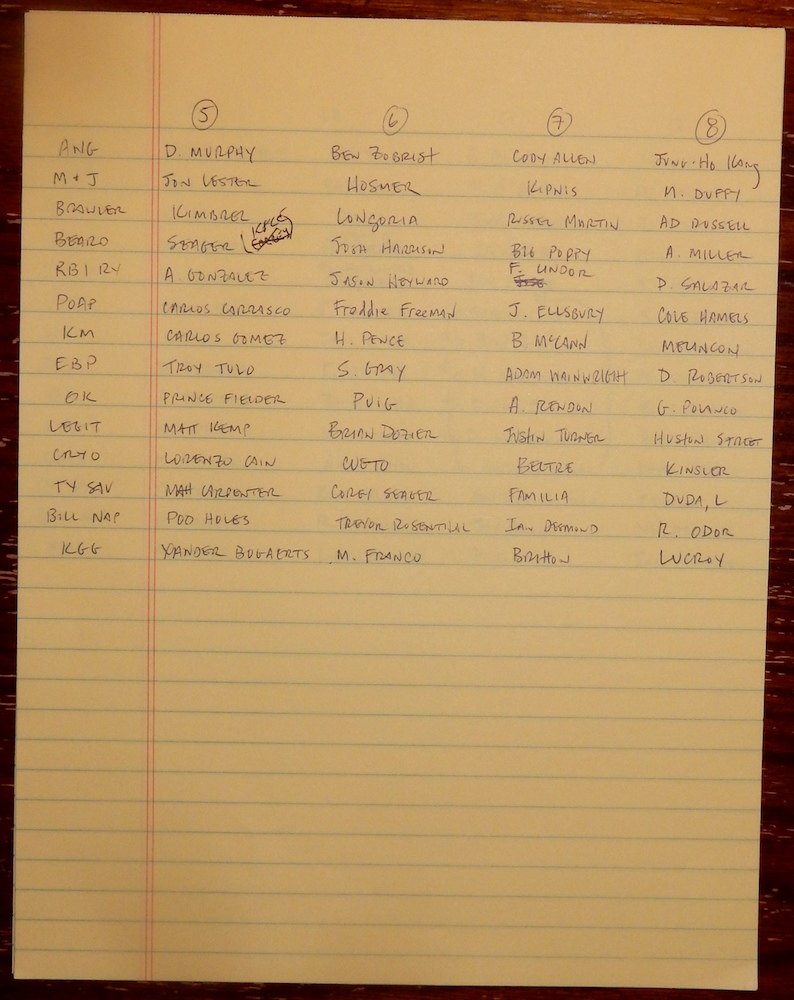 5 6 7 8
ANG D. MURPHY BEN ZOBRIST CODY ALLEN JUNG-HO KANG
M + J JON LESTER HOSMER KIPNIS M. DUFFY
BRAWLER KIMBREL LONGORIA RUSSEL MARTIN AD RUSSELL
BEARD SEAGER (KYLE JOSH HARRISON BIG POPPY A. MILLER
RBI RY A. GONZALEZ JASON HEYWARD F. LINDOR D. SALAZAR
POAP CARLOS CARRASCO Freddie FREEMAN J. ELLSBURY COLE HAMELS
KM CARLOS GOMEZ H. PENCE B McCANN MELANCON
EBP TROY TULO S. GRAY ADAM WAINWRIGHT D. ROBERTSON
OK PRINCE FIELDER PUIG A. RENDON G. POLANCO
LEGIT MATT KEMP BRIAN DOZIER JUSTIN TURNER HUSTON STREET
CRYO LORENZO CAIN CUETO BELTRE KINSLER
TY SAV MATT CARPENTER COREY SEAGER FAMILIA DUDA, L
BILL NAP POO HOLES TREVOR ROSENTHAL IAN DESMOND R. ODOR
KGG XANDER BOGAERTS M. FRANCO BRITTON LUCROY